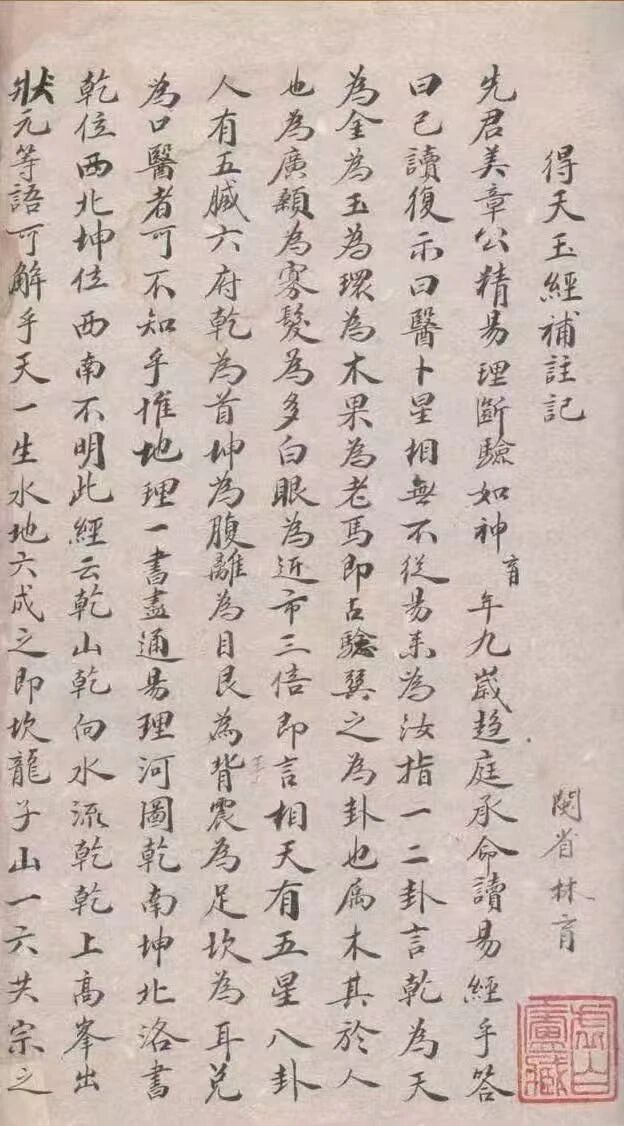 得天玉經補註記
閩省林育
先君美章公精易理斷驗如神育年九歲趋庭承命讀易經乎答
曰已讀復示曰醫卜星相無不從易来為汝指一二卦言乾為天
為金為玉為環為木果為老馬即占驗巽之為卦也属木其於人
也為廣顙為寡髮為多白眼為近市三倍即言相天有五星八卦
人有五臓六府乾為首坤為腹離為目艮為背震為足坎為耳兌
為口醫者可不知乎惟地理一書盡通易理河圖乾南坤北洛書
乾位西北坤位西南不明此經云乾山乾向水流乾乾上高峯出
狀元等語可解乎天一生水地六成之即坎龍子山一六共宗之
虛白廬藏